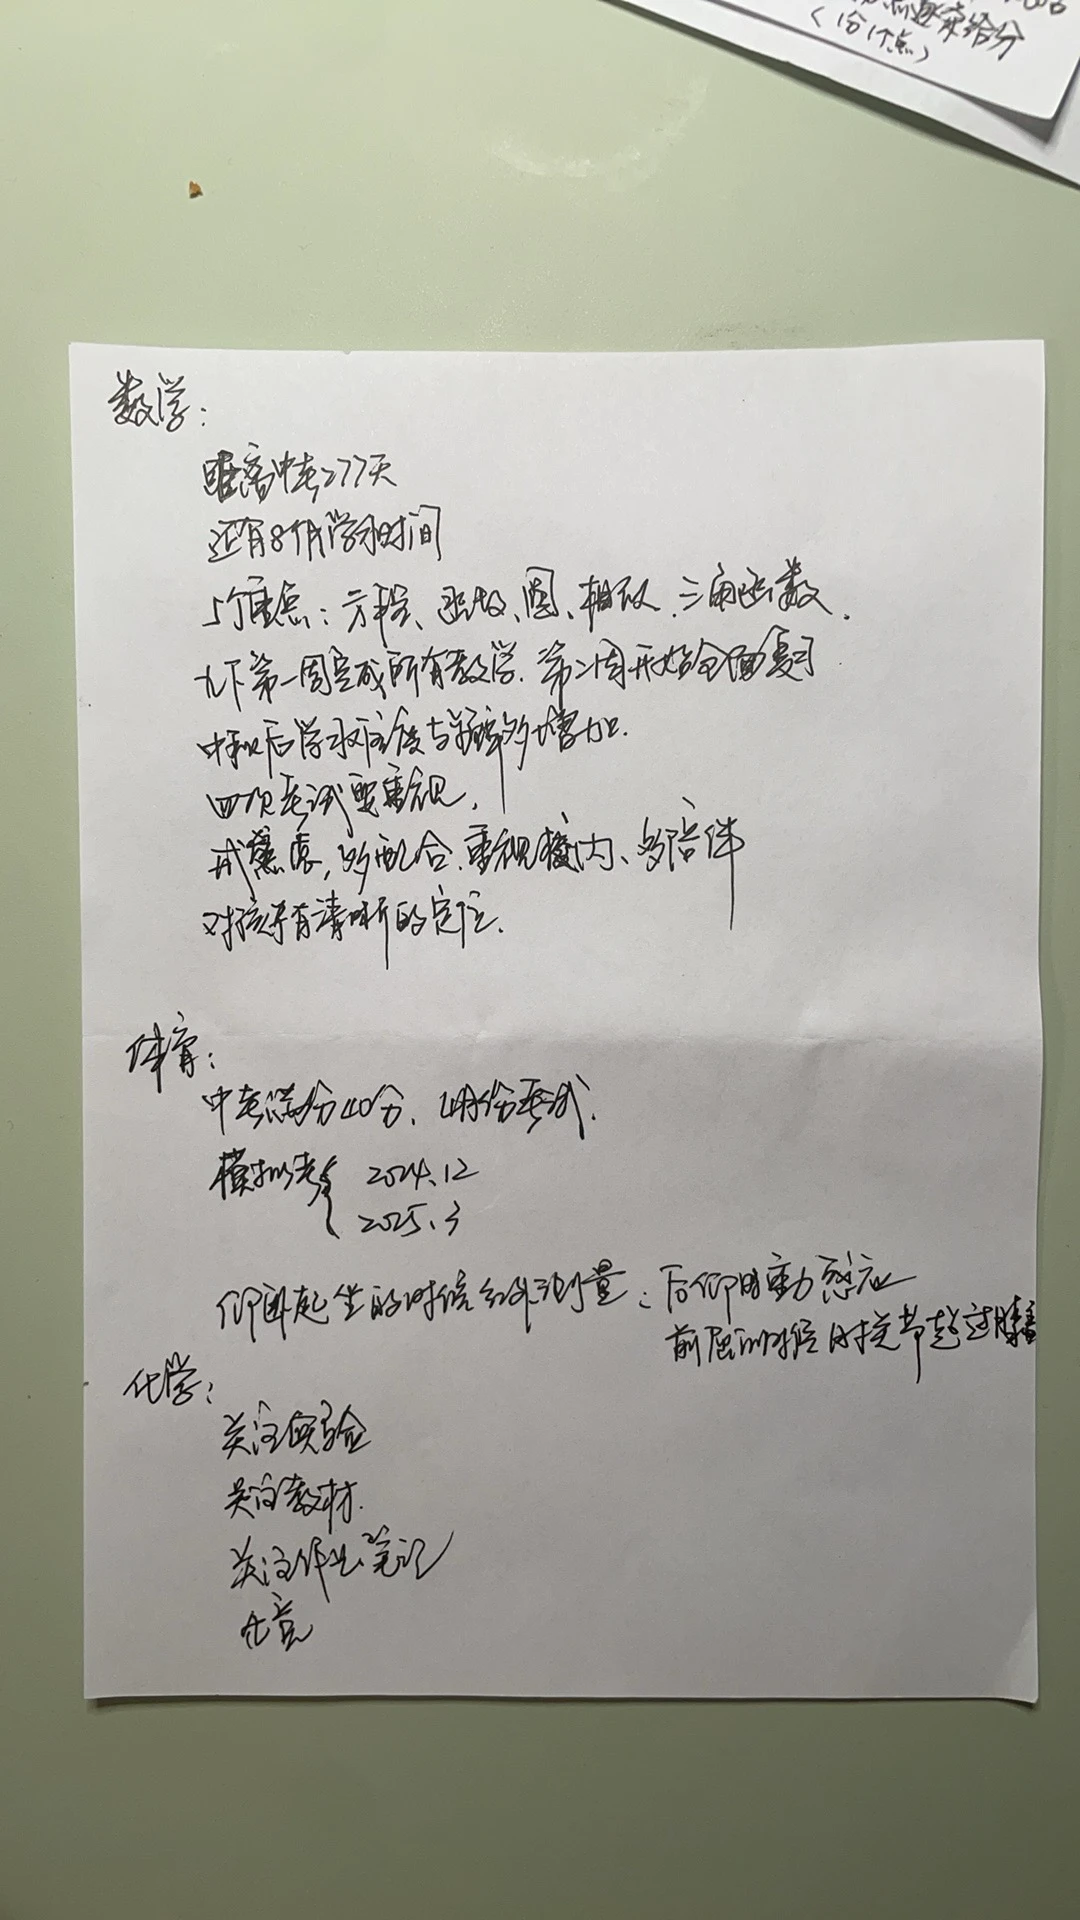 逐案给分
(1分1点)
数学:
距离中考277天
还有8个月学习时间
5个重点:方程、函数、圆、相似、三角函数.
九下第一周完成所有教学.第二周开始全面复习
中秋后学习难度与频率会增加.
四次考试要重视,
戒焦虑,多配合.重视校内、多陪伴
对孩子有清晰的定位.
体育:
中考满分40分、4月份考试.
模拟考{ 2024.12
2025.3
仰卧起坐的时候红外测量:后仰时重力感应
前屈的时候 肘关节超过膝盖
化学:
关注实验
关注教材.
关注作业、笔记
化竞